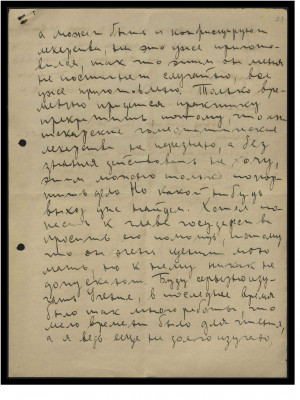 а может быть и конфискуют
лекарства, но это уже пригото-
вился, так что этим он меня
не постигнет случайно, все
уже приготовлено. Только вре-
менно придется практику
прекратить, потому, что
лекарства не надежно, а без
знания действовать не хочу,
этим можно только
дело. Но какой нибудь
выход уже найдем. Хотел по-
ехать к главе государства
просить его помощь, потому,
что он очень ценит мою
мать, но к нему никак не
Буду серьезно изу-
чать Учение, в последнее время
было так много работы, что
мало времени было для чтения,
а я ведь еще не долго изучаю,